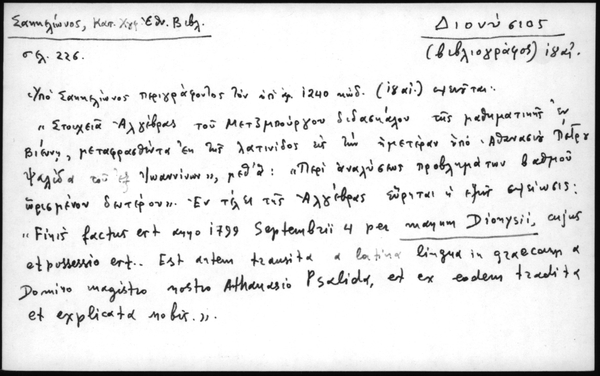 Σακκελίωνος, Κατ. Χγφ Ἐθν. Βιβλ.
Διονύσιος
σελ. 226.
(βιβλιογράφος) ιθ' αἰ.
«Ὑπὸ Σακκελίωνος περιγράφοντος τὸν ὑπ' ἀρ 1240 κώδ. (ιθ' αἰ.) σημειοῦται:
"Στοιχεῖα Ἀλγέβρας τοῦ Μετζμπούργου διδασκάλου τῆς μαθηματικῆς ἐν
Βιέννῃ, μεταφρασθέντα ἐκ τῆς λατινίδος εἰς τὴν ἡμετέραν ὑπὸ Ἀθανασίου Πέτρου
Ψαλίδα τοῦ ἐξ Ἰωαννίνων", μεθ' ἃ: "Περὶ ἀναλύσεως προβλημάτων βαθμοῦ
ὡρισμένου δευτέρου". Ἐν τέλει τῆς Ἀλγέβρας εὕρηται ἡ ἑξῆς σημείωσις:
"Finis factus est anno 1799 Septembrii 4 per manum Dionysii, cujus
et possessio est.. Est autem transita a latina lingua in graecam a
Domino magistro nostro Athanasio Psalida, et ex eodem tradita
et explicata nobis.".